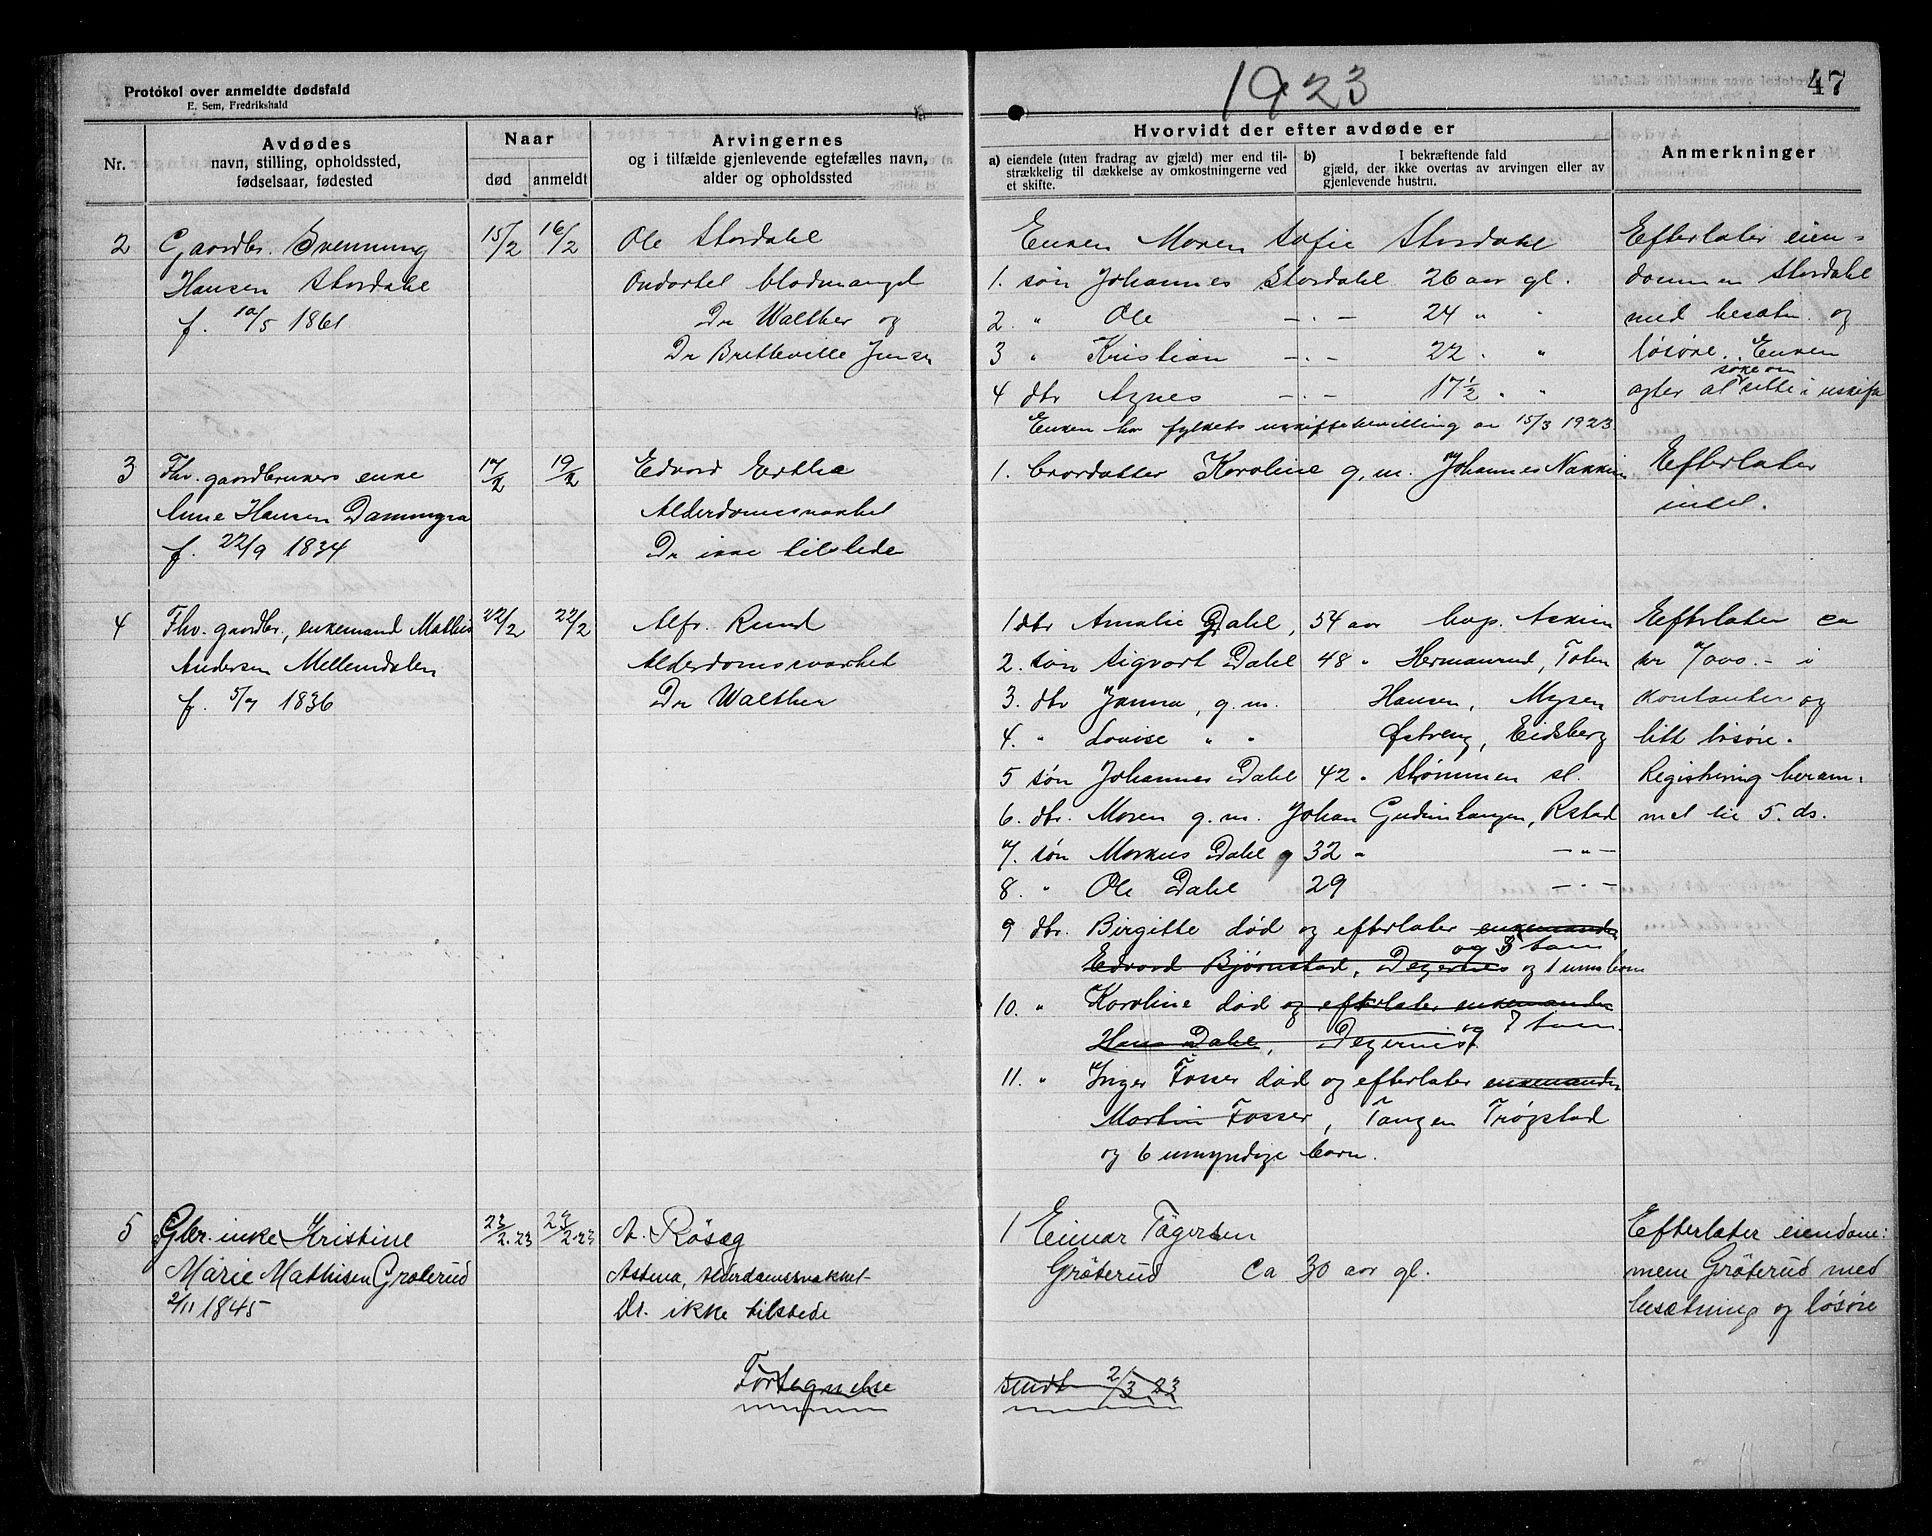 1923
47
Protokol over anmeldte dødsfald
E. Sem, Fredrikshald
Nr.
Avdødes
navn, stilling, opholdssted,
fødselsaar, fødested
Naar
død anmeldt
Arvingernes
og i tilfælde gjenlevende egtefælles navn,
alder og opholdssted
Hvorvidt der efter avdøde er
a) eiendele (uten fradrag av gjæld) mer end til-
strækkelig til dækkelse av omkostningerne ved
et skifte.
b) I bekræftende fald
gjæld, der ikke overtas av arvingen eller av
gjenlevende hustru.
Anmerkninger
2 Gaardbr. Svenning 15/2 16/2 Ole Stordahl
Hansen Stordahl Ondartet blodmangel
f. 10/5 1861 Dr Walther og
Dr Bretteville Jensen
Enken Maren Sofie Stordahl
1. søn Johannes Stordahl 26 aar gl.
2. " Ole -"- 24 " "
3 " Kristian -"- 22 " "
4 dtr Agnes -"- 17½ " "
Enken har fylkets uskiftebevilling av 15/3 1923
Efterlater eien-
dommen Stordahl
med besætn. og
løsøre. Enken
søke om
agter at sitte i uskifte
3 Fhv. gaardbrukers enke 17/2 19/2 Edvard Ertha
Anne Hansen Dammyra Alderdomssvakhet
f. 22/9 1834 Dr ikke tilstede
1. brordatter Karoline g.m. Johannes Nakkim
Efterlater
intet.
4 Fhv. gaardbr., enkemand Mathis 22/2 22/2 Alfr. Rud
Andersen Mellemdalen Alderdomssvakhet
f. 5/7 1836 Dr Walther
1 dtr Amalie Dahl, 54 aar bop. Askim
2. søn Sigvart Dahl 48 " Hermanrud, Toten
3. dtr Janna, g.m. Hansen, Mysen
4. " Lovise " " Østreng, Eidsberg
5 søn Johannes Dahl 42 " Strømmen st.
6. dtr. Maren g.m. Johan Gudimhaugen, Rstad
7. søn Markus Dahl 32 " -"-
8. " Ole Dahl 29 -"-
9 dtr. Birgitte død og efterlater enkemanden
og 3 barn
Edvard Bjørnstad, Degernes og 1 umb. barn
10. " Karoline død og efterlater enkemanden
og 7 barn
Hans Dahl, Degernes
11. " Inger Fosser død og efterlater enkemanden
Martin Fosser, Tangen Trøgstad
og 6 umyndige barn.
Efterlater ca
kr 7000.- i
kontanter og
litt løsøre.
Registrering beram-
met til 5. ds.
5 Gbr. enke Kristine 23/2.23 24/2.23 A. Røsæg
Marie Mathisen Grøterud Astma, alderdomssvakhet
2/11 1845 Dr. ikke tilstede
1 Einar Tagersen
Grøterud ca 30 aar gl.
Efterlater eiendom-
mene Grøterud med
besætning og løsøre
Fortegnelse sendt 2/3 23